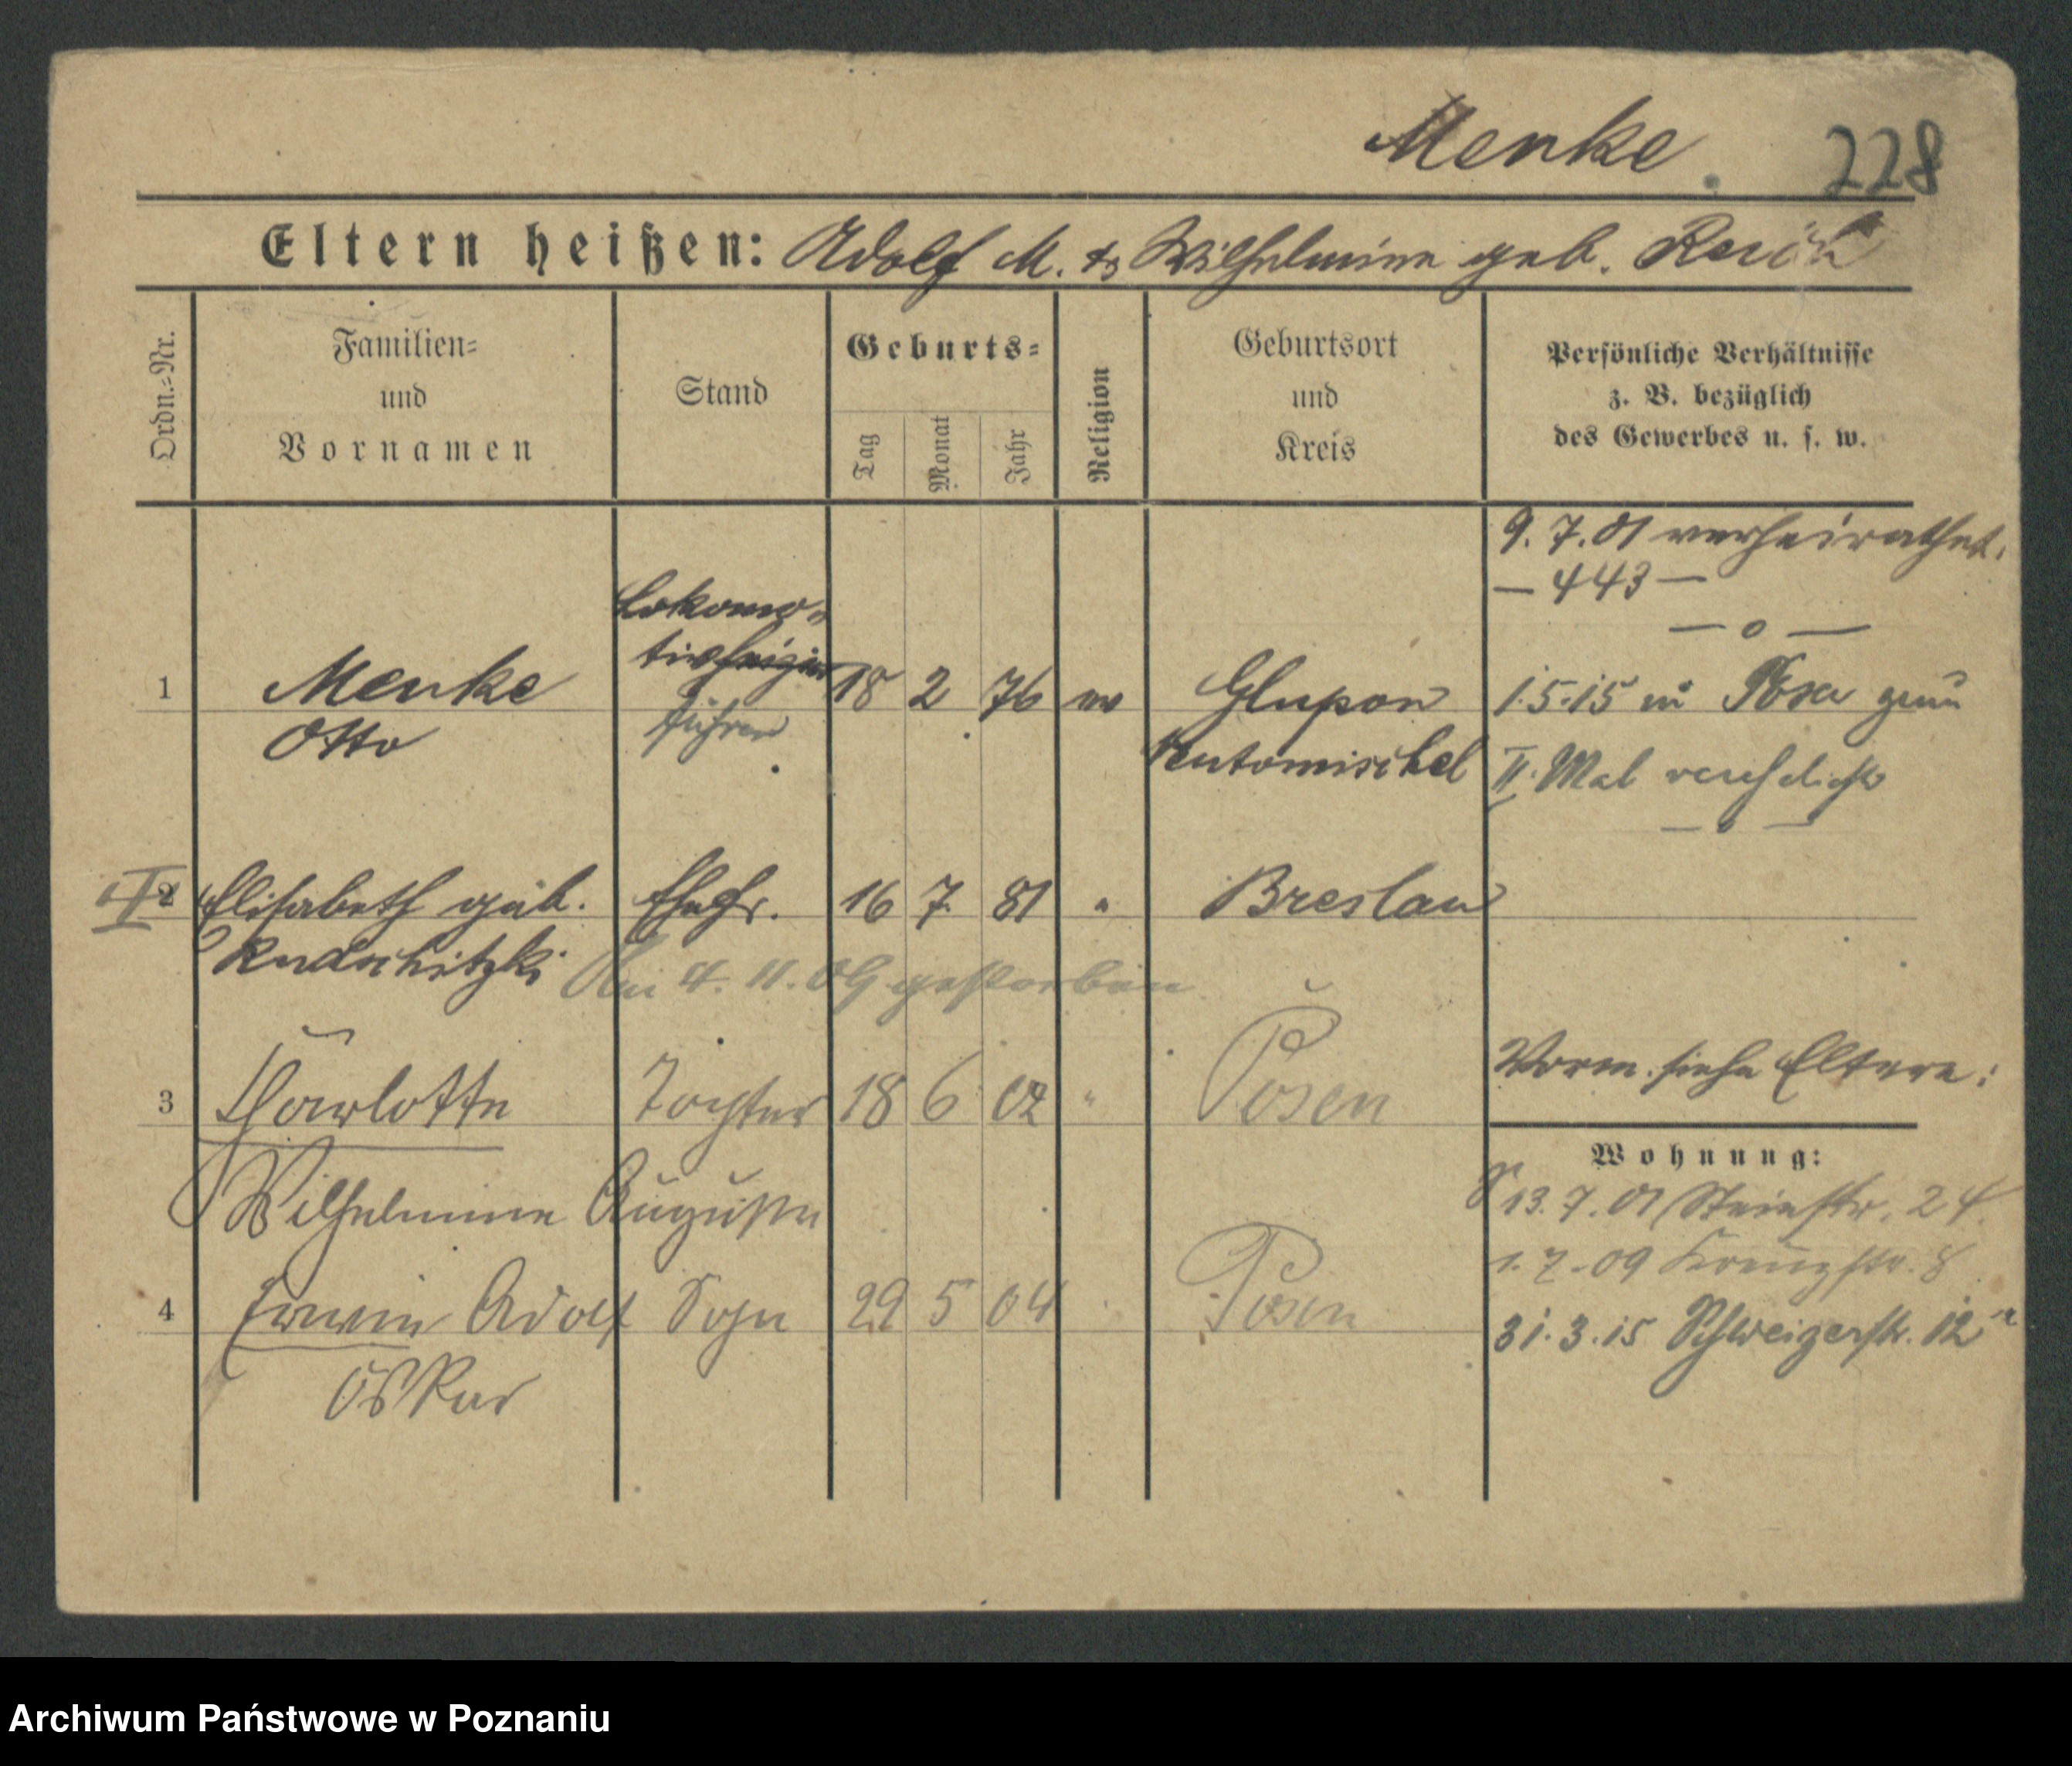 Menke. 228
Eltern heißen: Adolf M. & Wilhelmine geb.
Ordn.-Nr.
Familien-
und
Vornamen
Stand
Geburts-
Tag
Monat
Jahr
Religion
Geburtsort
und
Kreis
Persönliche Verhältnisse
z. B. bezüglich
des Gewerbes u. s. w.
9. 7. 01 verheirathet.
— 443 —
— o —
Lokomo-
tivheizer
führer
1 Menke 18 2 76 Glupon
Otto Neutomischel
1.5.15 in
II. Mal verehelicht
I 2 Elisabeth geb. Ehefr. 16 7. 81 " Breslau
Rudschitzki
Am 4. 11. 09 gestorben
3 Charlotte Tochter 18 6 02 " Posen
Wilhelmine Auguste
Vorm. siehe Eltern:
Wohnung:
13. 7. 01 Steinstr. 24.
1. 7. 09 Kreuzstr. 8
4 Erwin Adolf Sohn 29 5 04 Posen
Oskar
31. 3. 15 Schweizerstr. 12
Archiwum Państwowe w Poznaniu